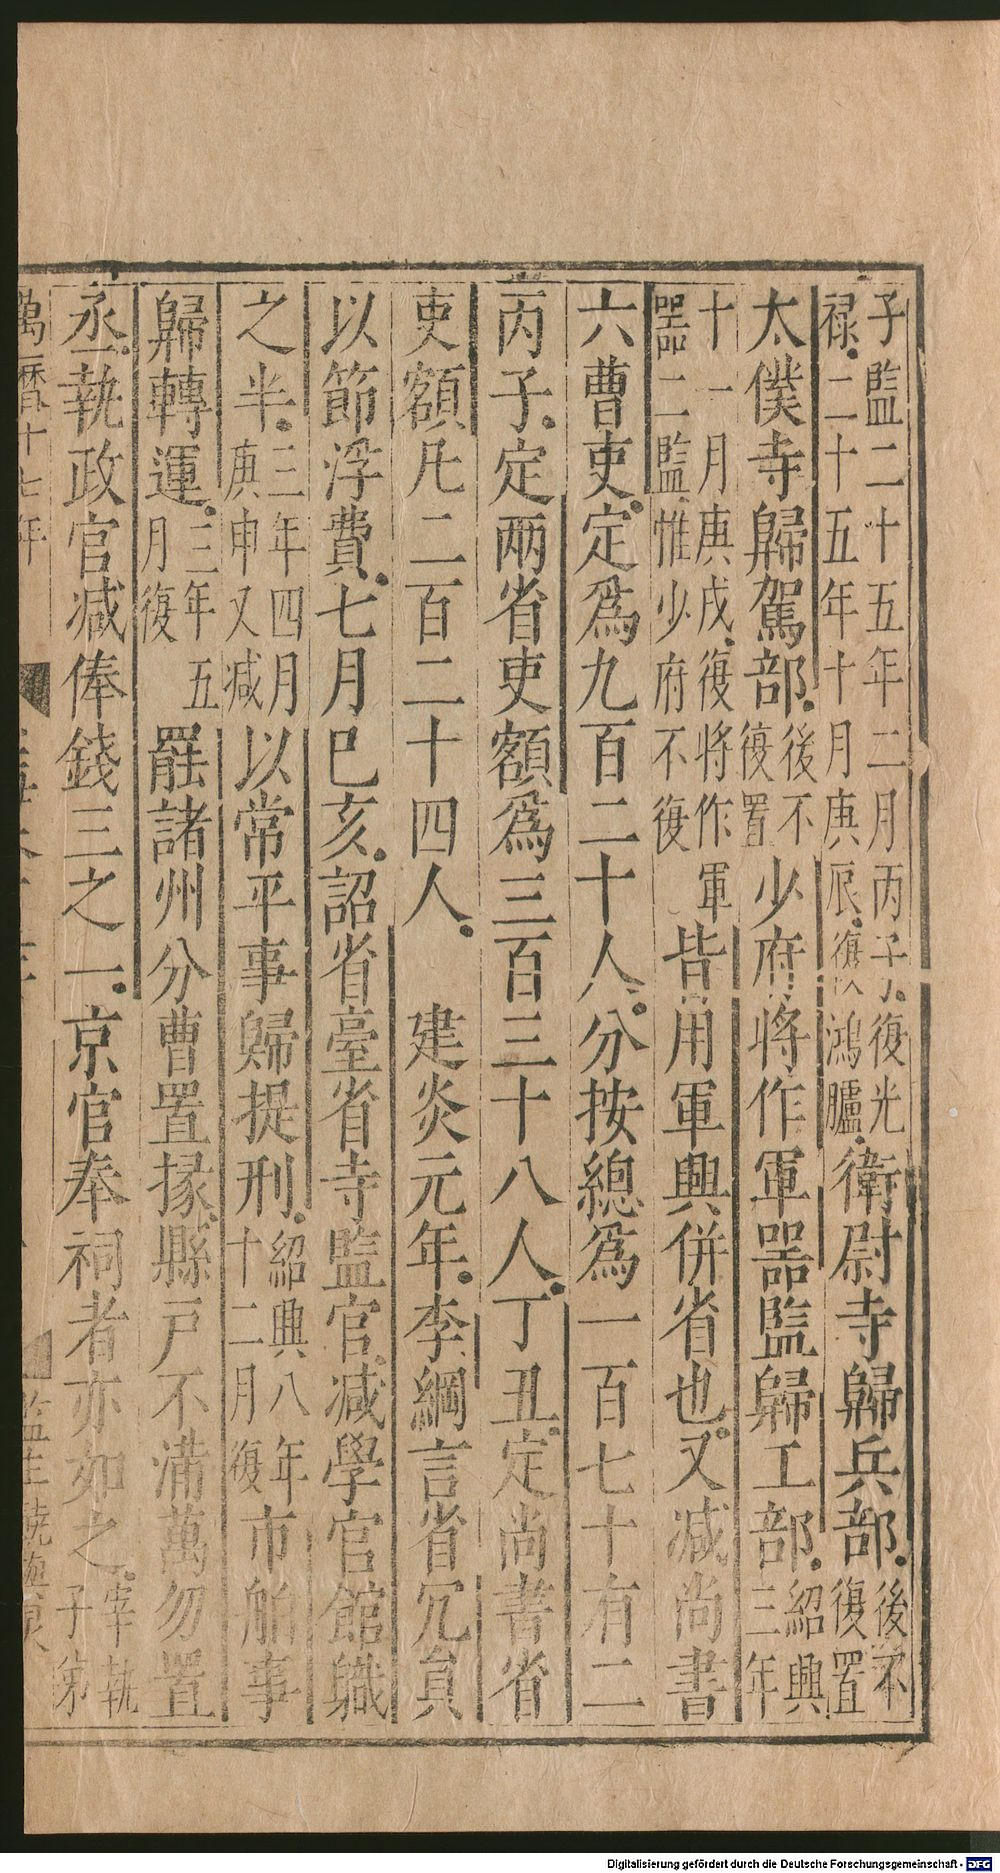 子監二十五年二月丙子復光
禄二十五年十月庚辰復以鴻臚衛尉寺歸兵部後不
復置
太僕寺歸駕部後不
復置少府將作軍器監歸工部紹興
三年
十一月庚戌復將作軍
器二監惟少府不復皆用軍興併省也又減尚書
六曹吏定爲九百二十人分按總爲一百七十有二
丙子定兩省吏額爲三百三十八人丁丑定尚書省
吏額凡二百二十四人 建炎元年李綱言省冗員
以節浮費七月巳亥詔省臺省寺監官減學官館職
之半三年四月
庚申又減以常平事歸提刑紹興八年
十二月復市舶事
歸轉運三年五
月復罷諸州分曹置掾縣戶不滿萬勿置
丞執政官減俸錢三之一京官奉祠者亦如之宰執
子弟
萬曆十七年
監生
Digitalisierung gefördert durch die Deutsche Forschungsgemeinschaft - DFG